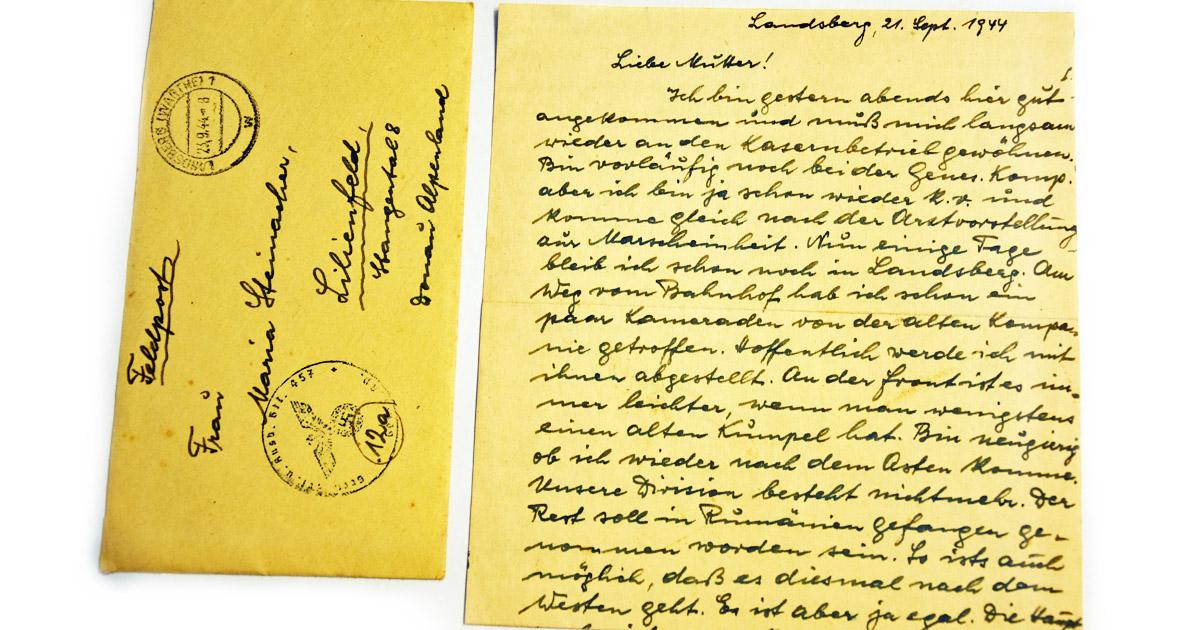 Feldpost
Frau
Maria Steinacher,
Lilienfeld,
Stangental 8
Donau Alpenland
LANDSBERG (WARTHE) 1
23.9.44-8
W
u. Ausb. Btl. 457
12a
Landsberg, 21. Sept. 1944
Liebe Mutter!
Ich bin gestern abends hier gut
angekommen und muß mich langsam
wieder an den Kasernbetrieb gewöhnen.
Bin vorläufig noch bei der Genes. Komp.
aber ich bin ja schon wieder k.v. und
komme gleich nach der Arztvorstellung
zur Marscheinheit. Nun einige Tage
bleib ich schon noch in Landsberg. Am
Weg vom Bahnhof hab ich schon ein
paar Kameraden von der alten Kompa-
nie getroffen. Hoffentlich werde ich mit
ihnen abgestellt. An der Front ist es im-
mer leichter, wenn man wenigstens
einen alten Kumpel hat. Bin neugierig
ob ich wieder nach dem Osten komme.
Unsere Division besteht nichtmehr. Der
Rest soll in Rumänien gefangen ge-
nommen worden sein. So ists auch
möglich, daß es diesmal nach dem
Westen geht. Es ist aber ja egal. Die Haupt